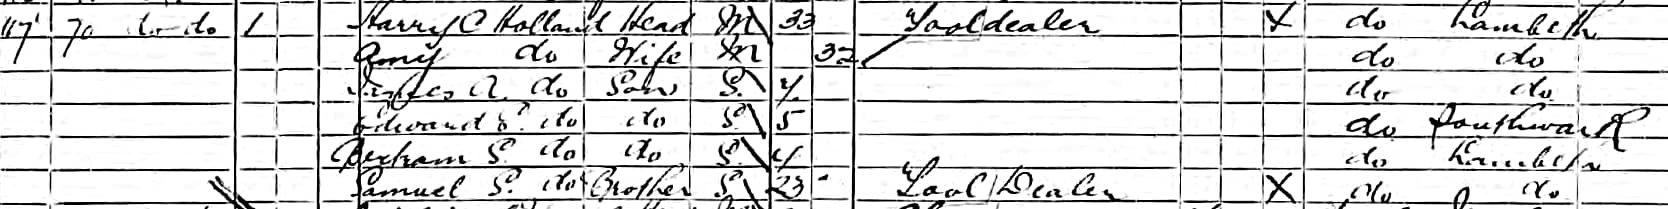 117 70 do do 1 Harry C Holland Head M 33 Tool dealer X do Lambeth
Amy do Wife M 32 do do
James A. do Son S. 7 do do
Edward S. do do S. 5 do Southwark
Bertram S. do do S. 4 do Lambeth
Samuel S. do Brother S. 23 Tool Dealer X do do